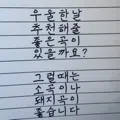 우울한날
추천해줄
좋은곡이
있을까요?
그럴때는
소곡이나
돼지곡이
좋습니다